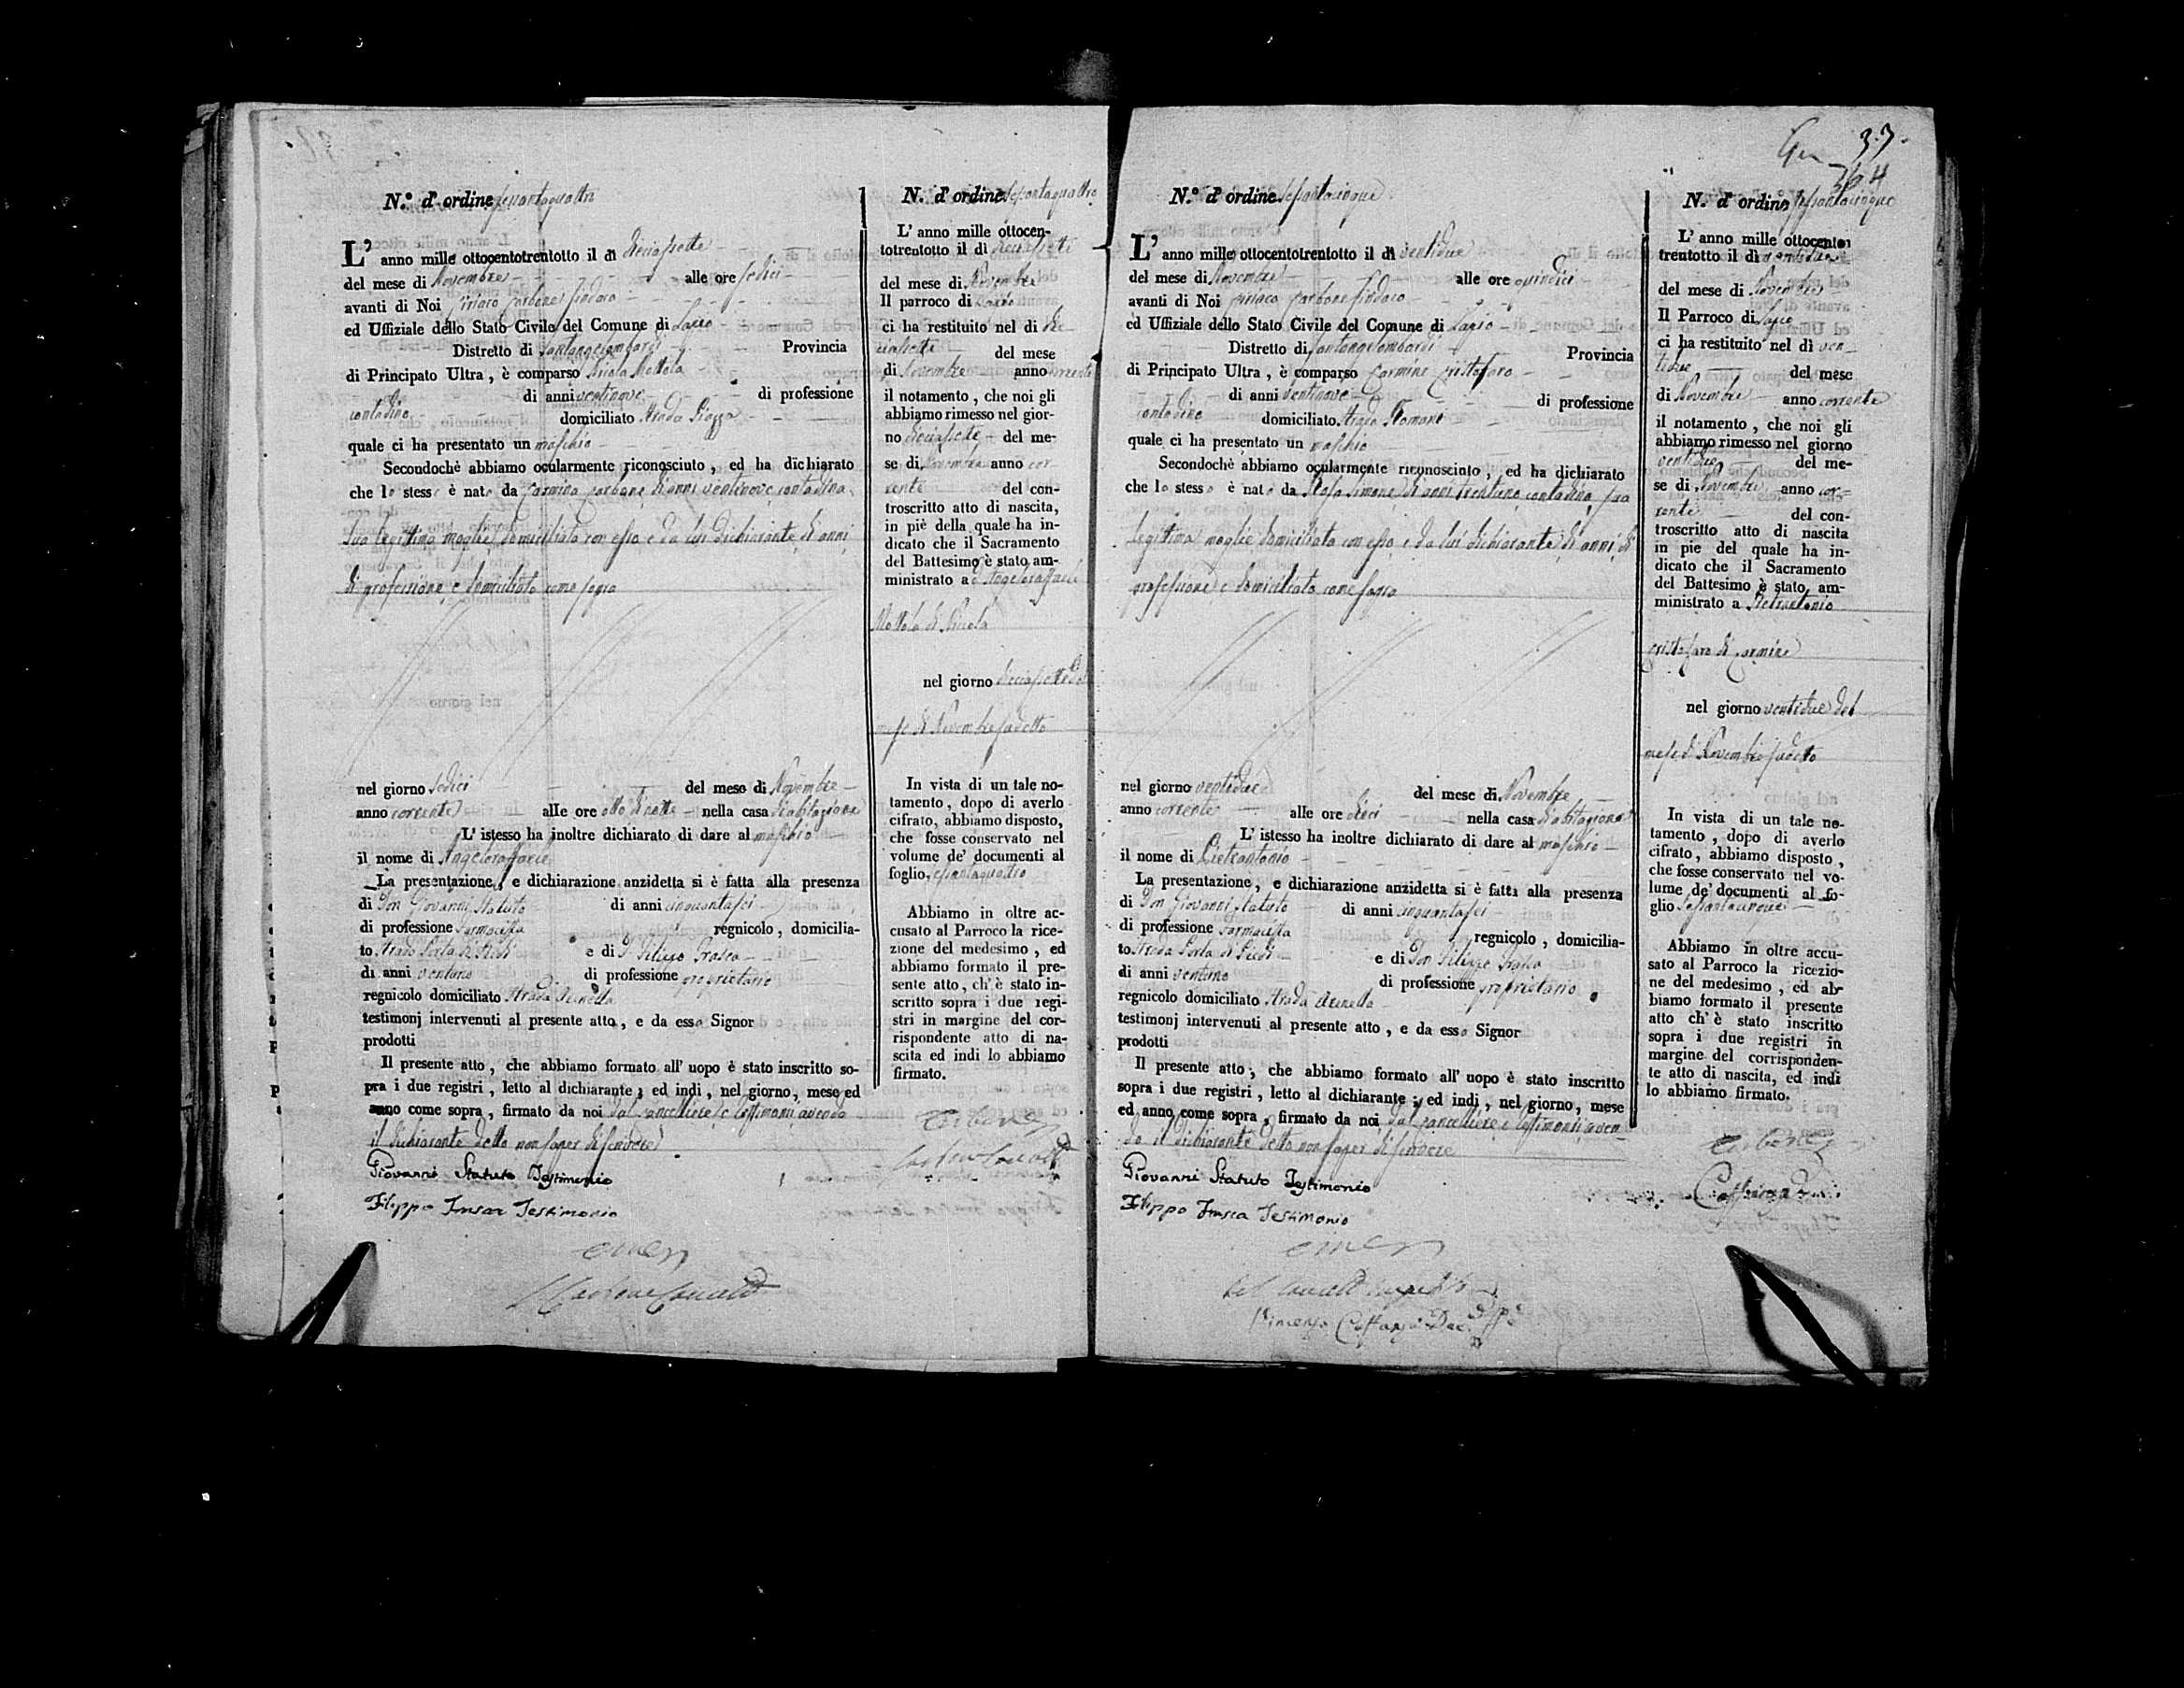 N.° d'ordine sessantaquattro
L' anno mille ottocentotrentotto il dì diciassette
del mese di Novembre alle ore sedici
avanti di Noi Ciriaco Carbone Sindaco
ed Uffiziale dello Stato Civile del Comune di
Distretto di Santangelombardi Provincia
di Principato Ultra, è comparso Nicola Mottola
di anni ventinove di professione
contadino domiciliato Strada Piazza
quale ci ha presentato un maschio
Secondochè abbiamo ocularmente riconosciuto, ed ha dichiarato
che lo stesso è nato da Carmina Carbone di anni ventinove contadina
sua legittima moglie domiciliata con esso e da lui dichiarante di anni
di professione e domiciliato come sopra
nel giorno sedici del mese di Novembre
anno corrente alle ore otto di notte nella casa di abitazione
L' istesso ha inoltre dichiarato di dare al maschio
il nome di Angeloraffaele
La presentazione, e dichiarazione anzidetta si è fatta alla presenza
di Don Giovanni Statuto di anni cinquantasei
di professione Farmacista regnicolo, domicilia-
to Strada Porta di Piedi e di D. Filippo Frasca
di anni ventuno di professione proprietario
regnicolo domiciliato Strada
testimonj intervenuti al presente atto, e da esso Signor
prodotti
Il presente atto, che abbiamo formato all' uopo è stato inscritto so-
pra i due registri, letto al dichiarante; ed indi, nel giorno, mese ed
anno come sopra, firmato da noi dal Cancelliere e testimonii avendo
il dichiarante detto non saper di scrivere
Giovanni Statuto Testimonio
Filippo Frasca Testimonio
N. d' ordine sessantaquattro
L' anno mille ottocen-
totrentotto il dì diciassette
del mese di Novembre
Il parroco di
ci ha restituito nel dì di-
ciassette del mese
di Novembre anno corrente
il notamento, che noi gli
abbiamo rimesso nel gior-
no diciassette del me-
se di Novembre anno cor
rente del con-
troscritto atto di nascita,
in piè della quale ha in-
dicato che il Sacramento
del Battesimo è stato am-
ministrato a Angeloraffaele
Mottola di Nicola
nel giorno diciassette del
mese di Novembre sudetto
In vista di un tale no-
tamento, dopo di averlo
cifrato, abbiamo disposto,
che fosse conservato nel
volume de' documenti al
foglio sessantaquattro
Abbiamo in oltre ac-
cusato al Parroco la rice-
zione del medesimo, ed
abbiamo formato il pre-
sente atto, ch'è stato in-
scritto sopra i due regi-
stri in margine del cor-
rispondente atto di na-
scita ed indi lo abbiamo
firmato.
Carbone
37
N.° d' ordine sessantacinque
L' anno mille ottocentotrentotto il dì ventidue
del mese di Novembre alle ore quindici
avanti di Noi Ciriaco Carbone Sindaco
ed Uffiziale dello Stato Civile del Comune di
Distretto di Santangelombardi Provincia
di Principato Ultra, è comparso Carmine Cristofaro
di anni ventinove di professione
contadino domiciliato Strada
quale ci ha presentato un maschio
Secondochè abbiamo ocularmente riconosciuto, ed ha dichiarato
che lo stesso è nato da Rosa Simone di anni trentuno contadina sua
legittima moglie domiciliata con esso e da lui dichiarante di anni di
professione e domiciliato come sopra
nel giorno ventidue del mese di Novembre
anno corrente alle ore dieci nella casa di abitazione
L' istesso ha inoltre dichiarato di dare al maschio
il nome di Pietrantonio
La presentazione, e dichiarazione anzidetta si è fatta alla presenza
di Don Giovanni Statuto di anni cinquantasei
di professione Farmacista regnicolo, domicilia-
to Strada Porta di Piedi e di Don Filippo Frasca
di anni ventuno di professione proprietario
regnicolo domiciliato Strada
testimonj intervenuti al presente atto, e da esso Signor
prodotti
Il presente atto, che abbiamo formato all' uopo è stato inscritto
sopra i due registri, letto al dichiarante; ed indi, nel giorno, mese
ed anno come sopra, firmato da noi dal Cancelliere e testimonii aven
do il dichiarante detto non saper di scrivere
Giovanni Statuto Testimonio
Filippo Frasca Testimonio
N. d' ordine sessantacinque
L' anno mille ottocento
trentotto il dì ventidue
del mese di Novembre
Il Parroco di
ci ha restituito nel dì ven-
tidue del mese
di Novembre anno corrente
il notamento, che noi gli
abbiamo rimesso nel giorno
ventidue del me-
se di Novembre anno cor-
rente del con-
troscritto atto di nascita
in pie del quale ha in-
dicato che il Sacramento
del Battesimo è stato am-
ministrato a Pietrantonio
Cristofaro di Carmine
nel giorno ventidue del
mese di Novembre sudetto
In vista di un tale no-
tamento, dopo di averlo
cifrato, abbiamo disposto,
che fosse conservato nel vo-
lume de' documenti al fo-
glio sessantacinque
Abbiamo in oltre accu-
sato al Parroco la ricezio-
ne del medesimo, ed ab-
biamo formato il presente
atto ch'è stato inscritto
sopra i due registri in
margine del corrisponden-
te atto di nascita, ed indi
lo abbiamo firmato.
Carbone